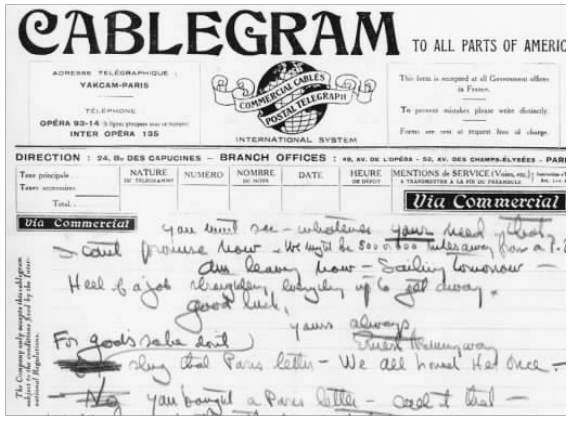 CABLEGRAM TO ALL PARTS OF AMERIC
ADRESSE TÉLÉGRAPHIQUE :
YAKCAM-PARIS
TÉLÉPHONE
OPÉRA 93-14
INTER OPÉRA 135
COMMERCIAL CABLES
POSTAL TELEGRAPH
INTERNATIONAL SYSTEM
This form is accepted at all Government offices
in France.
To prevent mistakes please write distinctly.
Forms are sent at request free of charge.
DIRECTION : 24, Bd DES CAPUCINES – BRANCH OFFICES : 49, AV. DE L'OPÉRA - 52, AV. DES CHAMPS-ÉLYSÉES - PARI
Taxe principale
Taxes accessoires
Total
NATURE
DU TÉLÉGRAMME
NUMÉRO
NOMBRE
DE MOTS
DATE
HEURE
DE DÉPÔT
MENTIONS de SERVICE (Voies, etc.)
A TRANSMETTRE A LA FIN DU PRÉAMBULE
Via Commercial
Via Commercial
The Company only accepts this cablegram
subject to the conditions fixed by the Inter-
national Regulations.
you must see - whatever your need
I can't promise now - We might be 500 or 1000 miles away from a P.
Am leaving now - Sailing tomorrow -
Hell of a job straightening everything up to get away.
Good luck,
yours always
Ernest Hemingway
For god's sake don't
slug that Paris letter - We all head Her once -
No you bought a Paris letter - that -